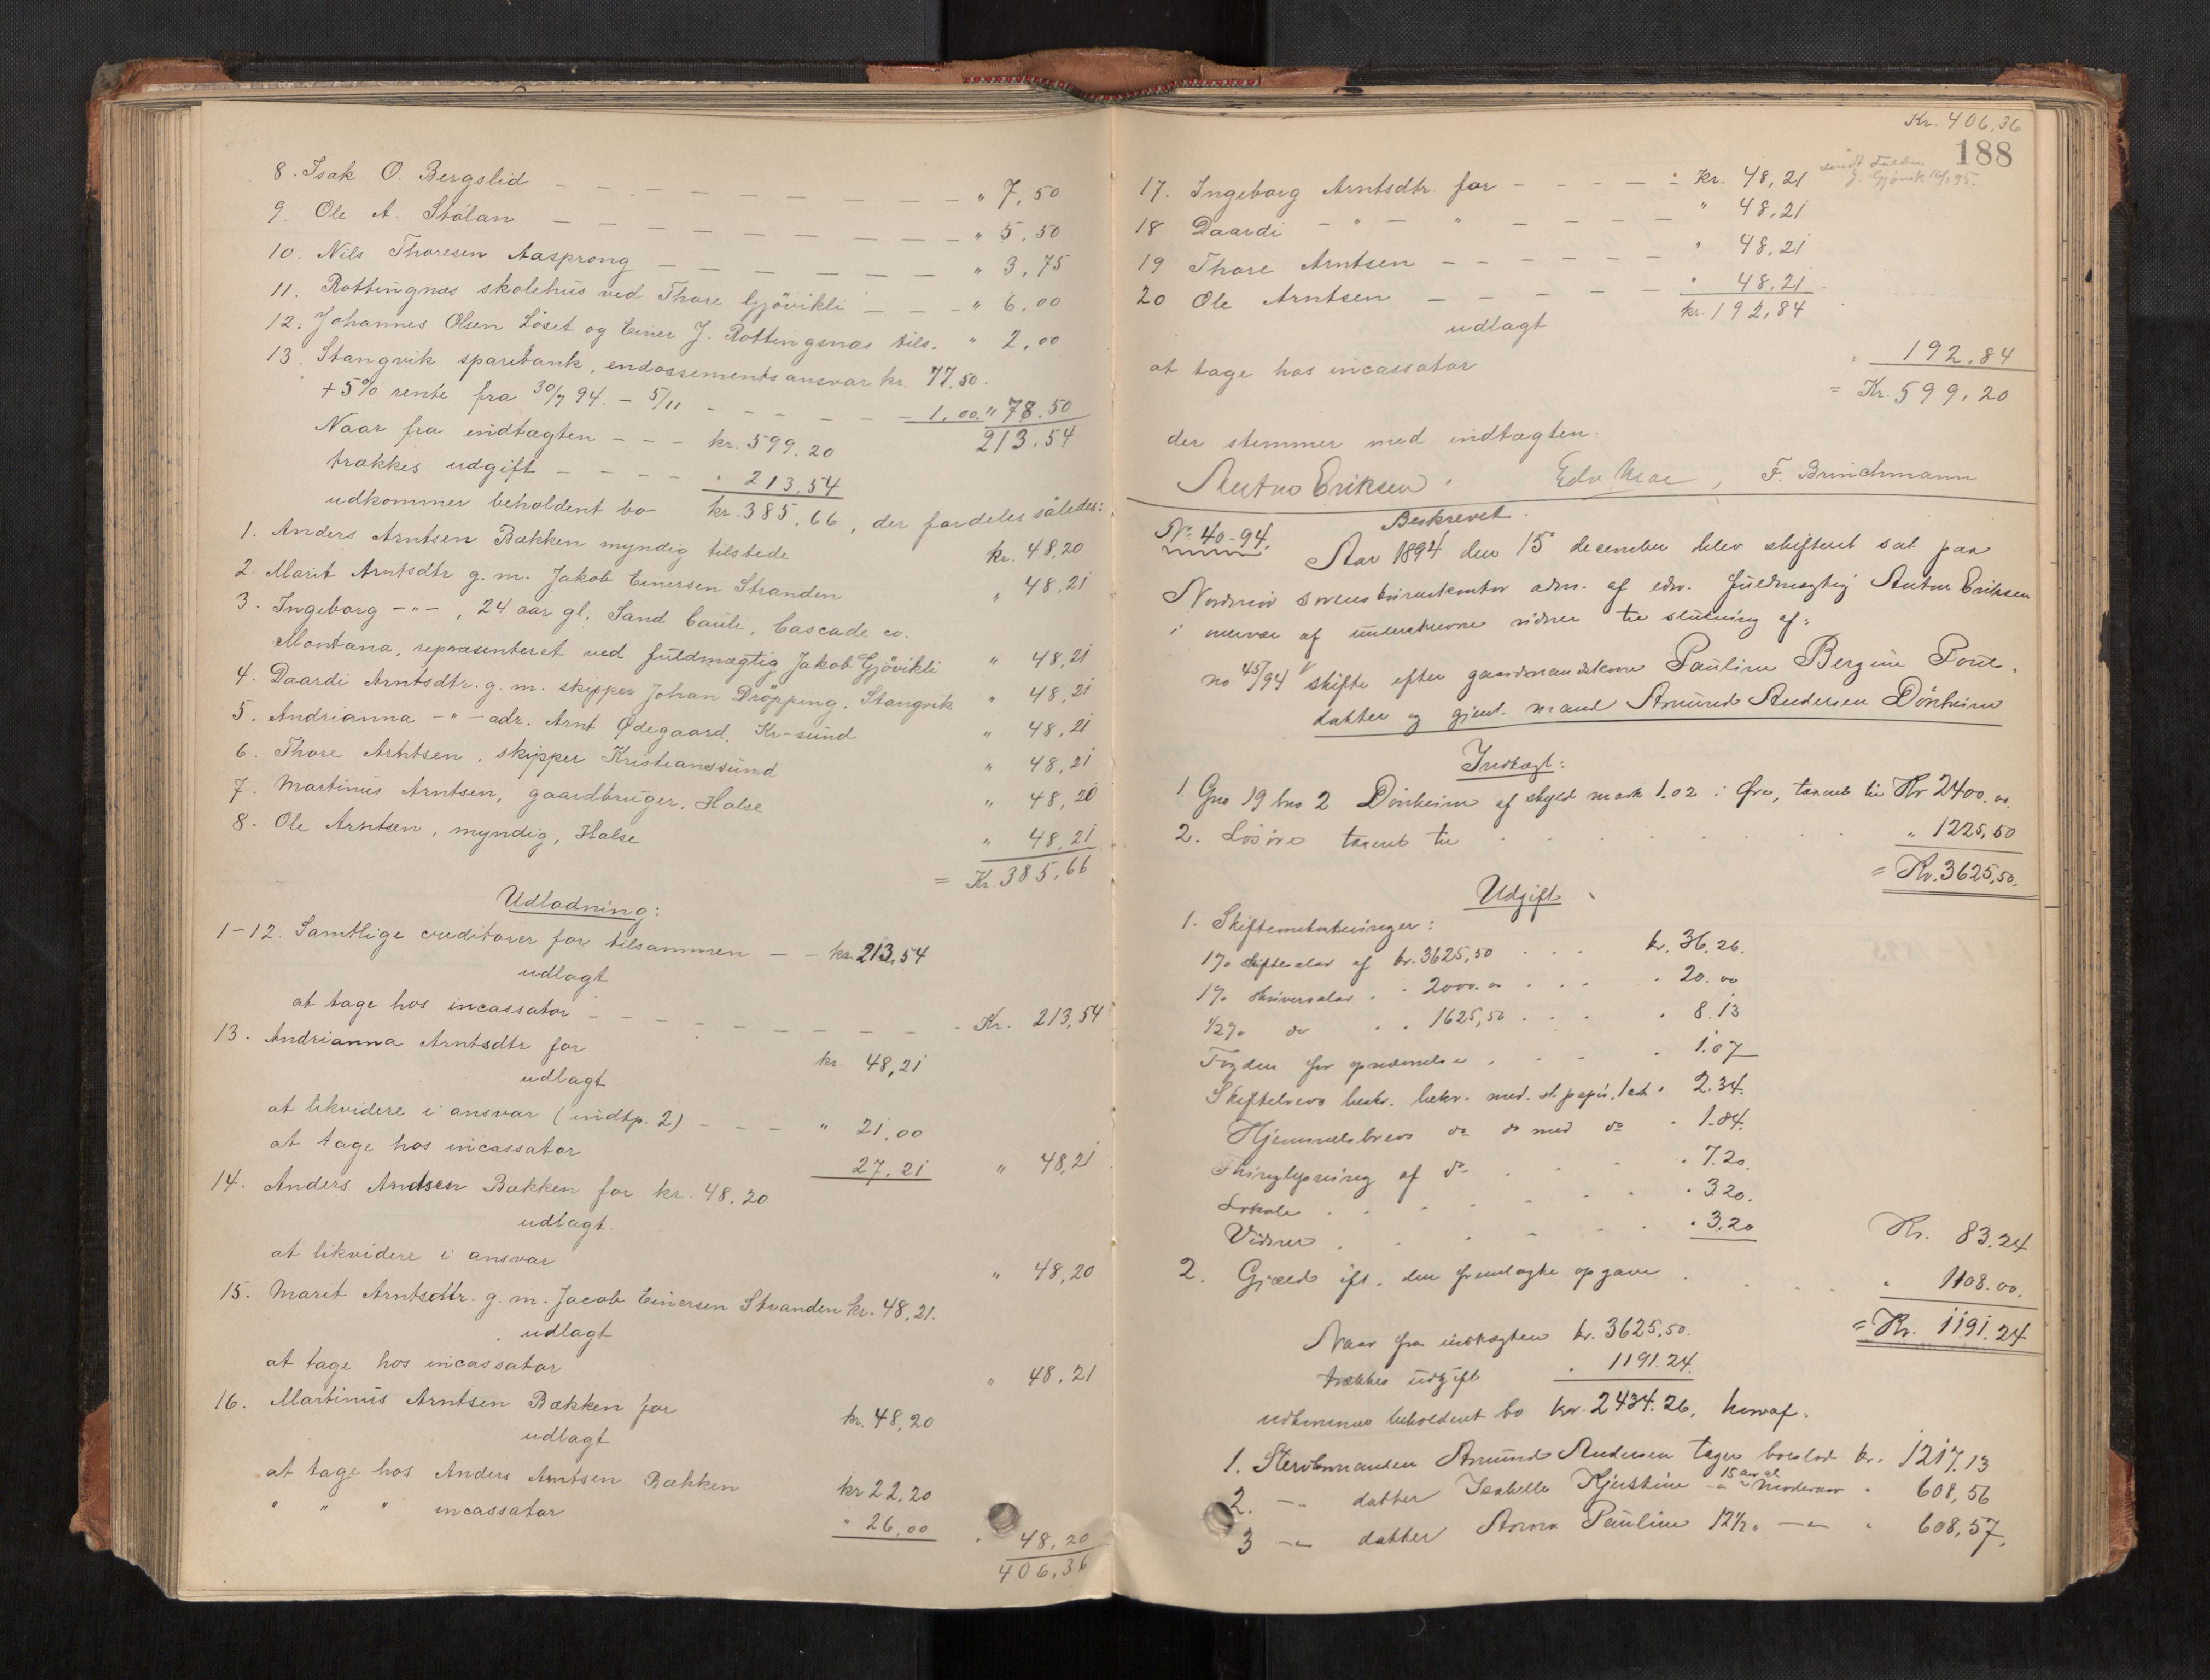 8. Isak O. Bergslid — — — — — — — — — " 7,50
9. Ole A. Stölan — — — — — — — — — " 5,50
10. Nils Thoresen Aasprong — — — — — — — " 3,75
11. Rottingnæs skolehus ved Thore Gjövikli — — — " 6,00
12. Johannes Olsen Löset og Einer J. Rottingsnæs tils. " 2,00
13. Stangvik sparebank, endossementsansvar kr. 77,50.
+ 5% rente fra 30/7 94. – 5/11 — — — — — 1,00. " 78.50
213.54
Naar fra indtægten — — — kr. 599.20
trækkes udgift — — — — " 213.54
udkommer beholdent bo kr. 385,66, der fordeles således:
1. Anders Arntsen Bækken myndig tilstede kr. 48,20
2. Marit Arntsdtr g. m. Jakob Einersen Stranden " 48,21
3. Ingeborg –"– , 24 aar gl. Sand Coule, Cascade co.
Montana, repræsenteret ved fuldmægtig Jakob Gjövikli " 48,21
4. Daardi Arntsdtr. g. m. skipper Johan Dröpping, Stangvik " 48,21
5. Andrianna –"– adr. Arnt Ødegaard, Kr-sund " 48,21
6. Thore Arntsen, skipper Kristianssund " 48,21
7. Martinus Arntsen, gaardbruger, Halse " 48,20
8. Ole Arntsen, myndig, Halse " 48,21
= Kr. 385,66
Udlodning:
1–12. Samtlige creditorer for tilsammen — — kr. 213,54
udlagt
at tage hos incassator — — — — — — — — Kr. 213,54
13. Andrianna Arntsdtr for kr. 48,21
udlagt
at likvidere i ansvar (indtp. 2) — — — " 21,00
at tage hos incassator 27,21 " 48,21
14. Anders Arntsen Bækken for kr. 48.20
udlagt
at likvidere i ansvar " 48,20
15. Marit Arntsdtr. g. m. Jacob Einersen Stranden kr. 48,21.
udlagt
at tage hos incassator " 48,21
16. Martinus Arntsen Bækken for kr. 48,20
udlagt
at tage hos Anders Arntsen Bækken kr 22,20
" " " incassator " 26,00 " 48,20
406,36
Kr. 406,36
188
17. Ingeborg Arntsdtr. for — — — — : kr. 48,21
18 Daardi — " — " — — — — " 48,21
19 Thore Arntsen — — — — — — " 48,21
20 Ole Arntsen — — — — — " 48,21
udlagt kr. 192,84
at tage hos incassator " 192,84
= Kr. 599,20
der stemmer med indtægten.
Anton Eriksen. Edv Moe, F. Brinchmann
Beskrevet.
No 40-94. Aar 1894 den 15 december blev skifteret sat paa
Nordmör sorenskriverkontor adm. af edsv. fuldmægtig Anton Eriksen
i nærvær af underskrevne vidner til slutning af:
no 45/94 skifte efter gaardmandskone Pauline Bergine Pouls-
datter og gjenl. mand Amund Andersen Dönheim
Indtægt:
1. Gno 19 bno 2 Dönheim af skyld mark 1.02 i Øre, taxeret til Kr 2400.00.
2. Lösöre taxeret til " 1225,50
= Kr. 3625,50.
Udgift
1. Skifteomkostninger:
1% skiftesalær af kr. 3625,50 . . . kr. 36.26.
1% skriversalær . " 2000.00 . . . " 20.00
1/2% do . " 1625,50 . . . " 8.13
Fogden for opnævnelse . . . " 1.07
Skiftebrevs beskr. bekr. med st. papir, 1 ark " 2.34.
Hjemmelsbrevs do do med do " 1.84.
Thinglysning af do . . . " 7.20.
Lokale . . . . . " 3.20.
Vidner . . . . . " 3,20 Kr. 83.24
2. Gjæld ifl. den fremlagte opgave . . . " 1108.00.
= Kr. 1191.24
Naar fra indtægten kr. 3625,50.
trækkes udgift " 1191.24.
udkommer beholdent bo kr. 2434.26, hvoraf:
1. Stervbomanden Amund Andersen tager boeslod kr. 1217.13
2. –"– datter Isabella Kjerstine 15 aar gl. –"– Modrearv " 608,56
3 –"– datter Anna Pauline 12 1/2 " –"– " 608,57.